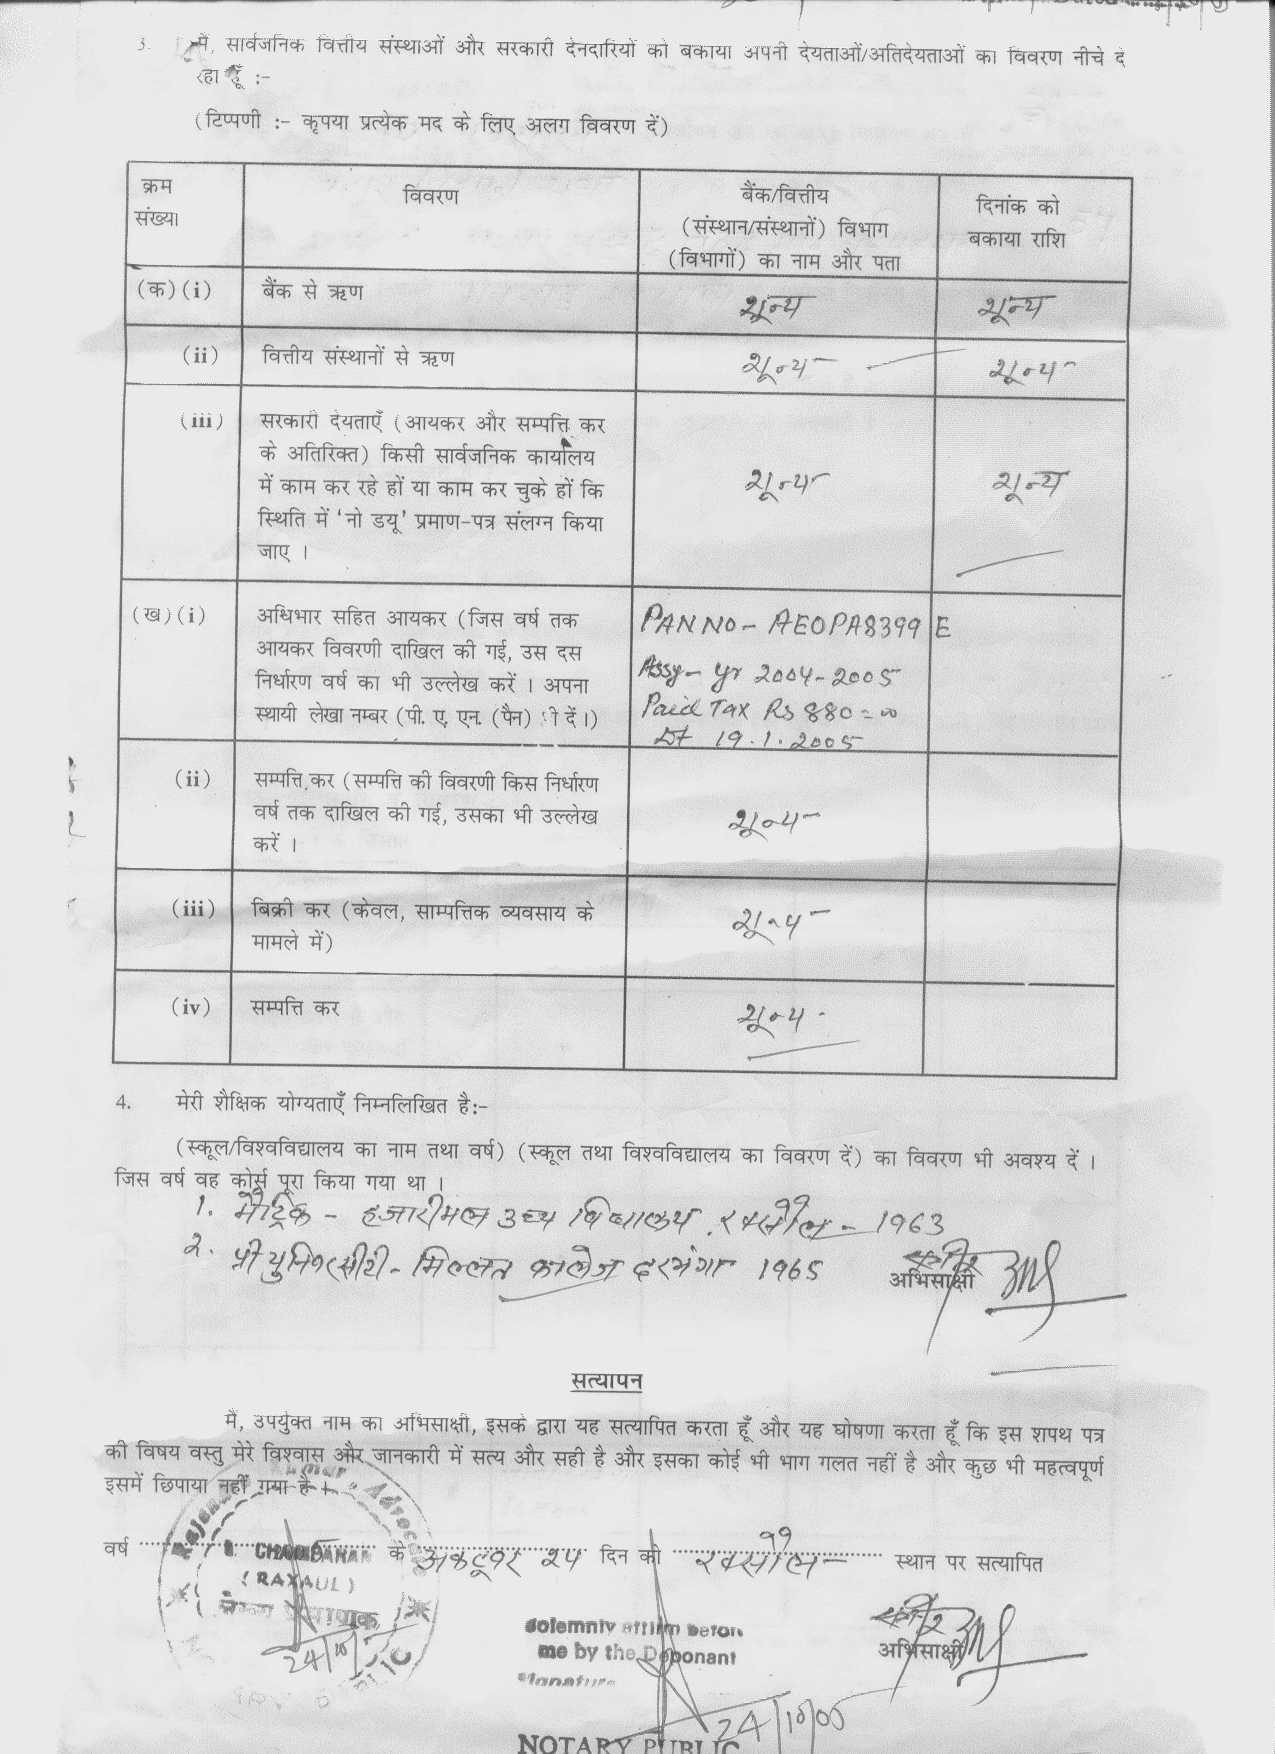 3. मैं, सार्वजनिक वित्तीय संस्थाओं और सरकारी देनदारियों को बकाया अपनी देयताओं/अतिदेयताओं का विवरण नीचे दे
रहा हूँ :-
(टिप्पणी :- कृपया प्रत्येक मद के लिए अलग विवरण दें)
क्रम
संख्या
विवरण
बैंक/वित्तीय
(संस्थान/संस्थानों) विभाग
(विभागों) का नाम और पता
दिनांक को
बकाया राशि
(क) (i) बैंक से ऋण शून्य शून्य
(ii) वित्तीय संस्थानों से ऋण शून्य शून्य
(iii) सरकारी देयताएँ (आयकर और सम्पत्ति कर
के अतिरिक्त) किसी सार्वजनिक कार्यालय
में काम कर रहे हों या काम कर चुके हों कि
स्थिति में 'नो डयू' प्रमाण-पत्र संलग्न किया
जाए ।
शून्य शून्य
(ख) (i) अधिभार सहित आयकर (जिस वर्ष तक
आयकर विवरणी दाखिल की गई, उस दस
निर्धारण वर्ष का भी उल्लेख करें । अपना
स्थायी लेखा नम्बर (पी. ए. एन. (पैन) भी दें।)
PAN NO - AEOPA8399E
Assy - yr 2004-2005
Paid Tax Rs 880=00
Dt 19.1.2005
(ii) सम्पत्ति कर (सम्पत्ति की विवरणी किस निर्धारण
वर्ष तक दाखिल की गई, उसका भी उल्लेख
करें ।
शून्य
(iii) बिक्री कर (केवल, साम्पत्तिक व्यवसाय के
मामले में)
शून्य
(iv) सम्पत्ति कर शून्य
4. मेरी शैक्षिक योग्यताएँ निम्नलिखित है:-
(स्कूल/विश्वविद्यालय का नाम तथा वर्ष) (स्कूल तथा विश्वविद्यालय का विवरण दें) का विवरण भी अवश्य दें ।
जिस वर्ष वह कोर्स पूरा किया गया था ।
1. मैट्रिक - हजारीमल उच्च विद्यालय, रक्सौल - 1963
2. प्री युनिवरसीटी - मिल्लत कालेज दरभंगा 1965
अभिसाक्षी
सत्यापन
मैं, उपर्युक्त नाम का अभिसाक्षी, इसके द्वारा यह सत्यापित करता हूँ और यह घोषणा करता हूँ कि इस शपथ पत्र
की विषय वस्तु मेरे विश्वास और जानकारी में सत्य और सही है और इसका कोई भी भाग गलत नहीं है और कुछ भी महत्वपूर्ण
इसमें छिपाया नहीं गया है ।
वर्ष के अक्टूबर 24 दिन को रक्सौल - स्थान पर सत्यापित
Kumar Advocate
CHAMPARAN
(RAXAUL)
24/10/
Solemnly affirm before
me by the Deponant
Signature
अभिसाक्षी
24/10/05
NOTARY PUBLIC